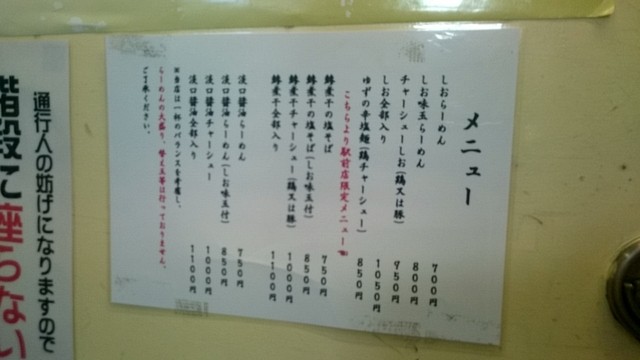 メニュー
しおらーめん 700円
しお味玉らーめん 800円
チャーシューしお(鶏又は豚) 950円
しお全部入り 1050円
ゆずの辛塩麺(鶏チャーシュー) 850円
こちらより駅前店限定メニュー
鯵煮干の塩そば 750円
鯵煮干の塩そば(しお味玉付) 850円
鯵煮干チャーシュー(鶏又は豚) 1000円
鯵煮干全部入り 1100円
淡口醤油らーめん 750円
淡口醤油らーめん(しお味玉付) 850円
淡口醤油チャーシュー 1000円
淡口醤油全部入り 1100円
※当店は一杯のバランスを考慮し、
らーめんの大盛り、替え玉等は行っておりません。
ご了承ください。
通行人の妨げになりますので
階段に座らない